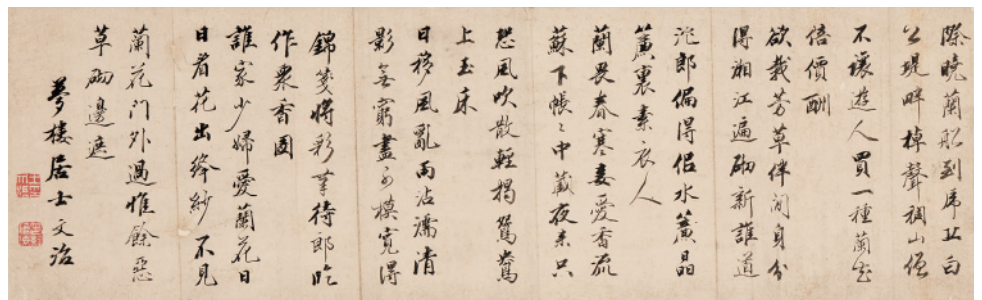 際曉蘭船到虎丘白
公堤畔棹聲稠山僧
不讓遊人買一種蘭花
倍價酬
欲栽芳草伴閒身分
得湘江遍砌新誰道
沈郎偏得侶水簾晶
簾裏素衣人
蘭畏春寒妾愛香流
蘇下帳帳中藏夜來只
恐風吹散輕揭鴛鴦
上玉床
日移風亂雨沾濡清
影無窮盡可摸寫得
錦箋將彩筆待郎吟
作眾香圖
誰家少婦愛蘭花日
日看花出絳紗不見
蘭花門外過惟餘惡
草砌邊遮
夢樓居士文治